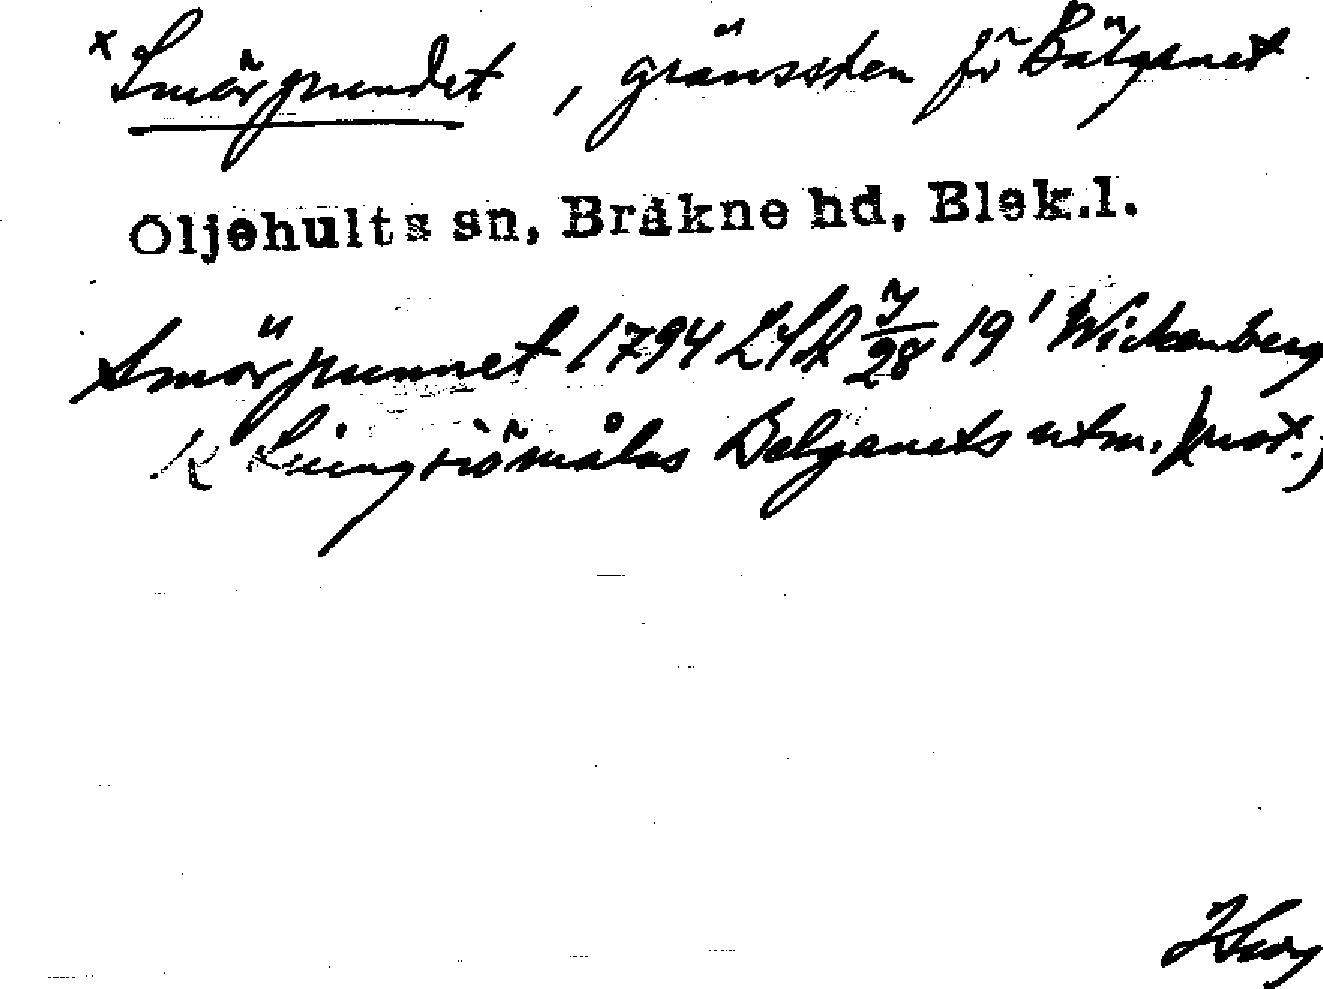 x Smörpundet, gränssten för Bälganet
Öljehults sn, Bräkne hd, Blek.l.
Smörpunnet 1794 LSA 7/28 19' Wickenberg
K Liungsiömålas Belganets utm. prot.